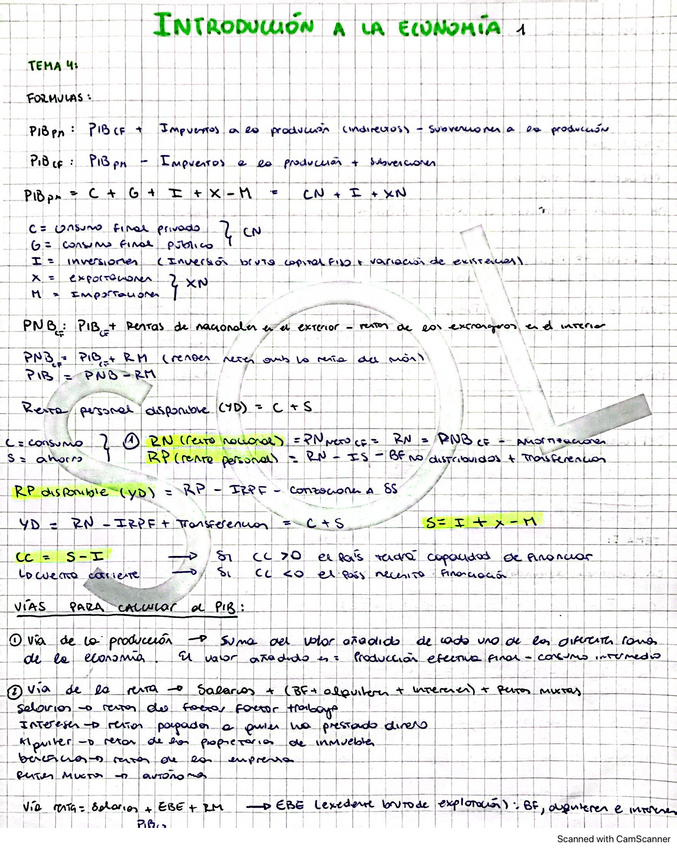 INTRODUCCIÓN A LA ECONOMÍA 1
TEMA 4:
FORMULAS:
PIBpm: PIBCF + Impuestos a la producción (indirectos) - subvenciones a la producción
PIBCF: PIBpm - Impuestos a la producción + subvenciones
PIBpm = C + G + I + X - M = CN + I + XN
C = consumo final privado } CN
G = consumo final público
I = inversiones (Inversión bruta capital fijo + variación de existencias)
X = exportaciones } XN
M = Importaciones
PNBCF: PIBCF + Rentas de nacionales en el exterior - rentas de los extranjeros en el interior
PNBCF = PIBCF + RM (rentas netas con la renta del mon)
PIB = PNB - RM
Renta personal disponible (YD) = C + S
C = consumo } ① RN (renta nacional) = PN neto CF = RN = PNB CF - Amortizaciones
S = ahorro RP (renta personal) = RN - IS - BF no distribuidos + Transferencias
RP disponible (YD) = RP - IRPF - cotizaciones A SS
YD = RN - IRPF + Transferencias = C + S S = I + X - M
CC = S - I → Si CC > 0 el País tendrá capacidad de financiar
La cuenta corriente → Si CC < 0 el país necesita financiación
VÍAS PARA CALCULAR el PIB:
① Vía de la producción → Suma del valor añadido de cada uno de las diferentes ramas
de la economía. El valor añadido es = Producción efectiva final - consumo intermedio
② Vía de la renta → Salarios + (BF + alquileres + intereses) + Rentas Mixtas
Salarios → rentas del factor factor trabajo
Intereses → rentas pagadas a quien ha prestado dinero
Alquiler → rentas de los propietarios de inmuebles
beneficios → rentas de las empresas
Rentas Mixtas → autónomo
Vía renta = Salarios + EBE + RM → EBE (excedente bruto de explotación): BF, alquileres e intereses
PIB
SOL
Scanned with CamScanner